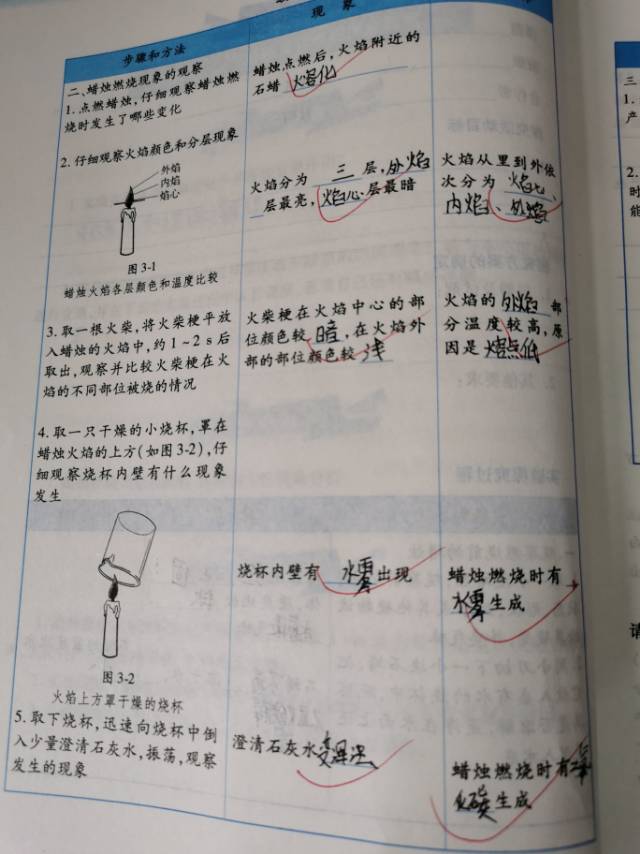 现 象
步骤和方法
二、蜡烛燃烧现象的观察
1. 点燃蜡烛，仔细观察蜡烛燃
烧时发生了哪些变化
蜡烛点燃后，火焰附近的
石蜡 熔化
2. 仔细观察火焰颜色和分层现象
外焰
内焰
焰心
图 3-1
蜡烛火焰各层颜色和温度比较
火焰分为 三 层，外焰
层最亮，焰心 层最暗
火焰从里到外依
次分为 焰心、
内焰、外焰
3. 取一根火柴，将火柴梗平放
入蜡烛的火焰中，约 1~2 s 后
取出，观察并比较火柴梗在火
焰的不同部位被烧的情况
火柴梗在火焰中心的部
位颜色较 暗，在火焰外
部的部位颜色较 浅
火焰的 外焰 部
分温度较高，原
因是 熔点低
4. 取一只干燥的小烧杯，罩在
蜡烛火焰的上方(如图 3-2)，仔
细观察烧杯内壁有什么现象
发生
图 3-2
火焰上方罩干燥的烧杯
烧杯内壁有 水雾 出现
蜡烛燃烧时有
水雾 生成
5. 取下烧杯，迅速向烧杯中倒
入少量澄清石灰水，振荡，观察
发生的现象
澄清石灰水 变混浊
蜡烛燃烧时有 二氧
化碳 生成
三
1.
产
2.
时
能